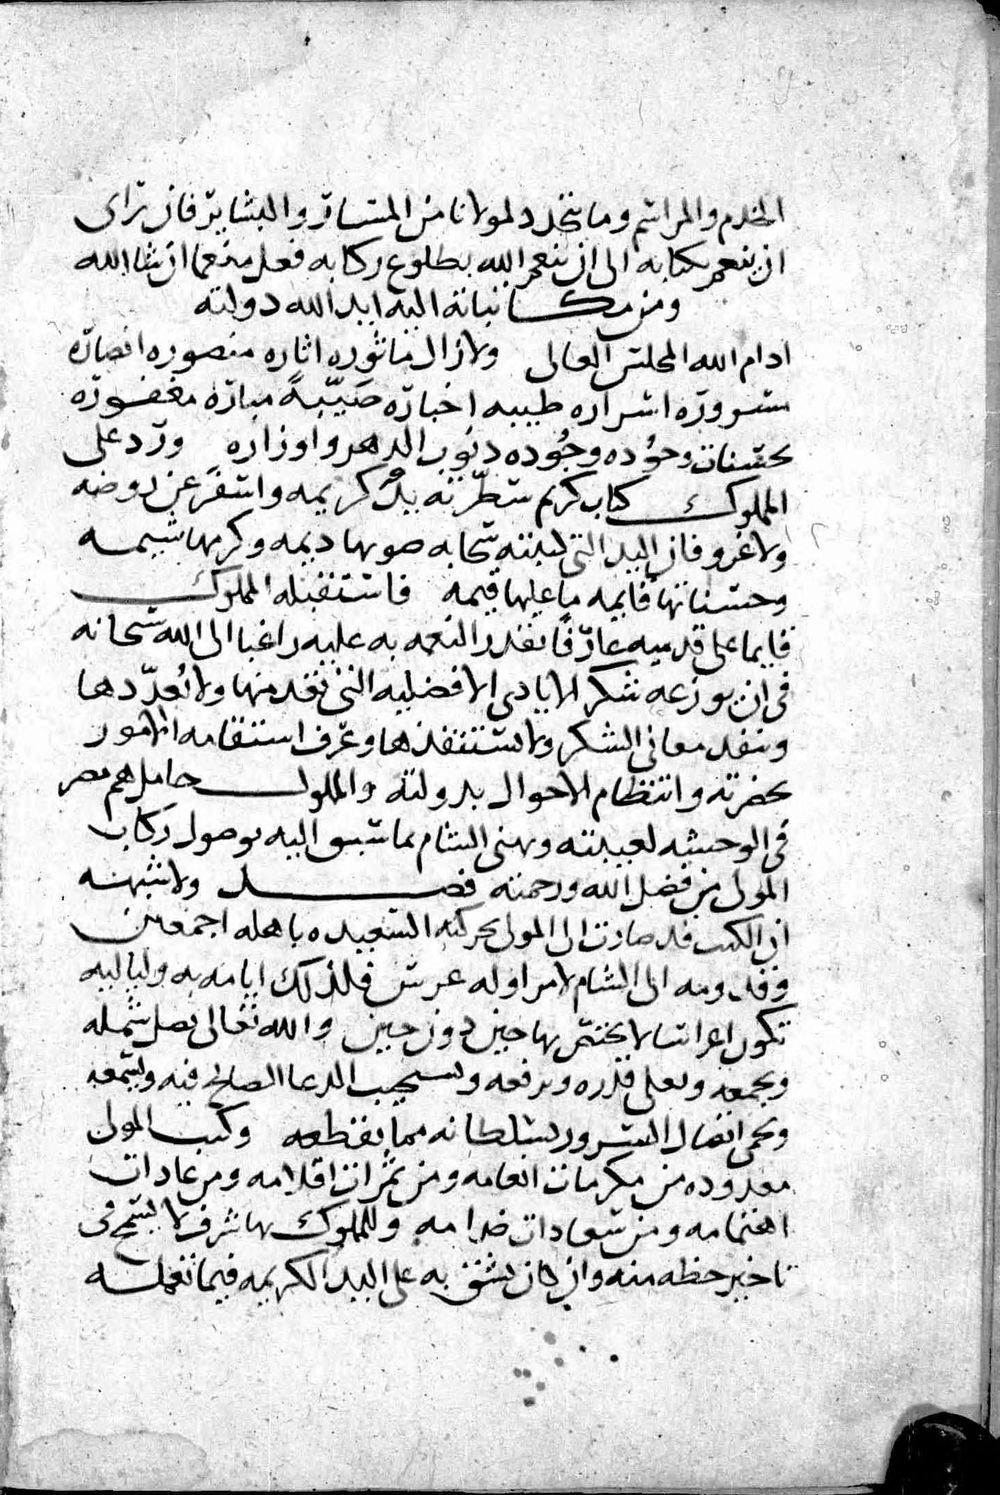 الخدم والمراسم وما يتجدد لمولانا من المسار والبشاير فان راى
ان ينعم بكتابه الى ان ينعم الله بطلوع ركابه فعل منعما ان شا الله
ومن مكاتباته اليه ايد الله دولته
ادام الله المجلس العالى ولا زال ماثوره اثاره منصوره انصاره
مسروره اسراره طيبه اخباره صيبة مبارّه مغفوره
بحسنات وجوده وجُوده ذنوب الدهر واوزاره ورد على
المملوك كتاب كريم سطّرته يدٌ كريمه واسفر عن روضه
ولا غرو فان اليد التى كتبته سحابه صوبها ديمه وكرمها شيمه
وحسناتها قايمه ما عليها قيمه فاستقبله المملوك
قايما على قدميه عارفًا بقدر النعمه به عليه راغبا الى الله سبحانه
فى ان يوزعه شكر الايادى الافضليه التى نقد منها ولا نُعدّدها
وننفد معانى الشكر ولا نستنفدها وعرف استقامه الامور
بحضرته وانتظام الاحوال بدولته والمملوك حامل هم مصر
فى الوحشه لغيبته ويهنى الشام بما سبق اليه بوصول ركاب
المولى من فضل الله ورحمته فصل ولا شبهه
ان الكتب قد صارت الى المولى بحركته السعيده باهله اجمعين
وقدومه الى الشام لامر اوله عرس فلذلك ايامه به ولياليه
تكون اعراسا لا يختص بها حين دون حين والله تعالى يصل شمله
ويجمعه ويعلى قدره ويرفعه ويستجيب الدعا الصالح فيه ويسمعه
ويحمى اتصال السرور بسلطانه مما يقطعه وكتب المولى
معدوده من مكرمات انعامه ومن ثمرات اقلامه ومن عادات
اهتمامه ومن سعادات خدامه وللمملوك بها شرف لا يسمح فى
تاخير حظه منه وان كان يشق به على اليد الكريمه فيما تعملـه